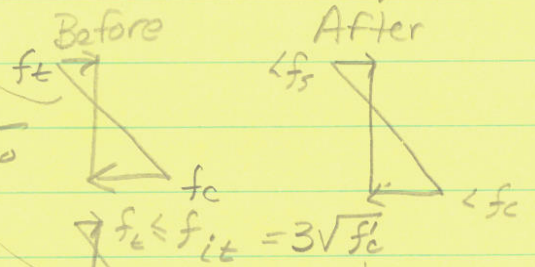 Before After
ft <fs
fc <fc
ft ≤ fit = 3√f'c